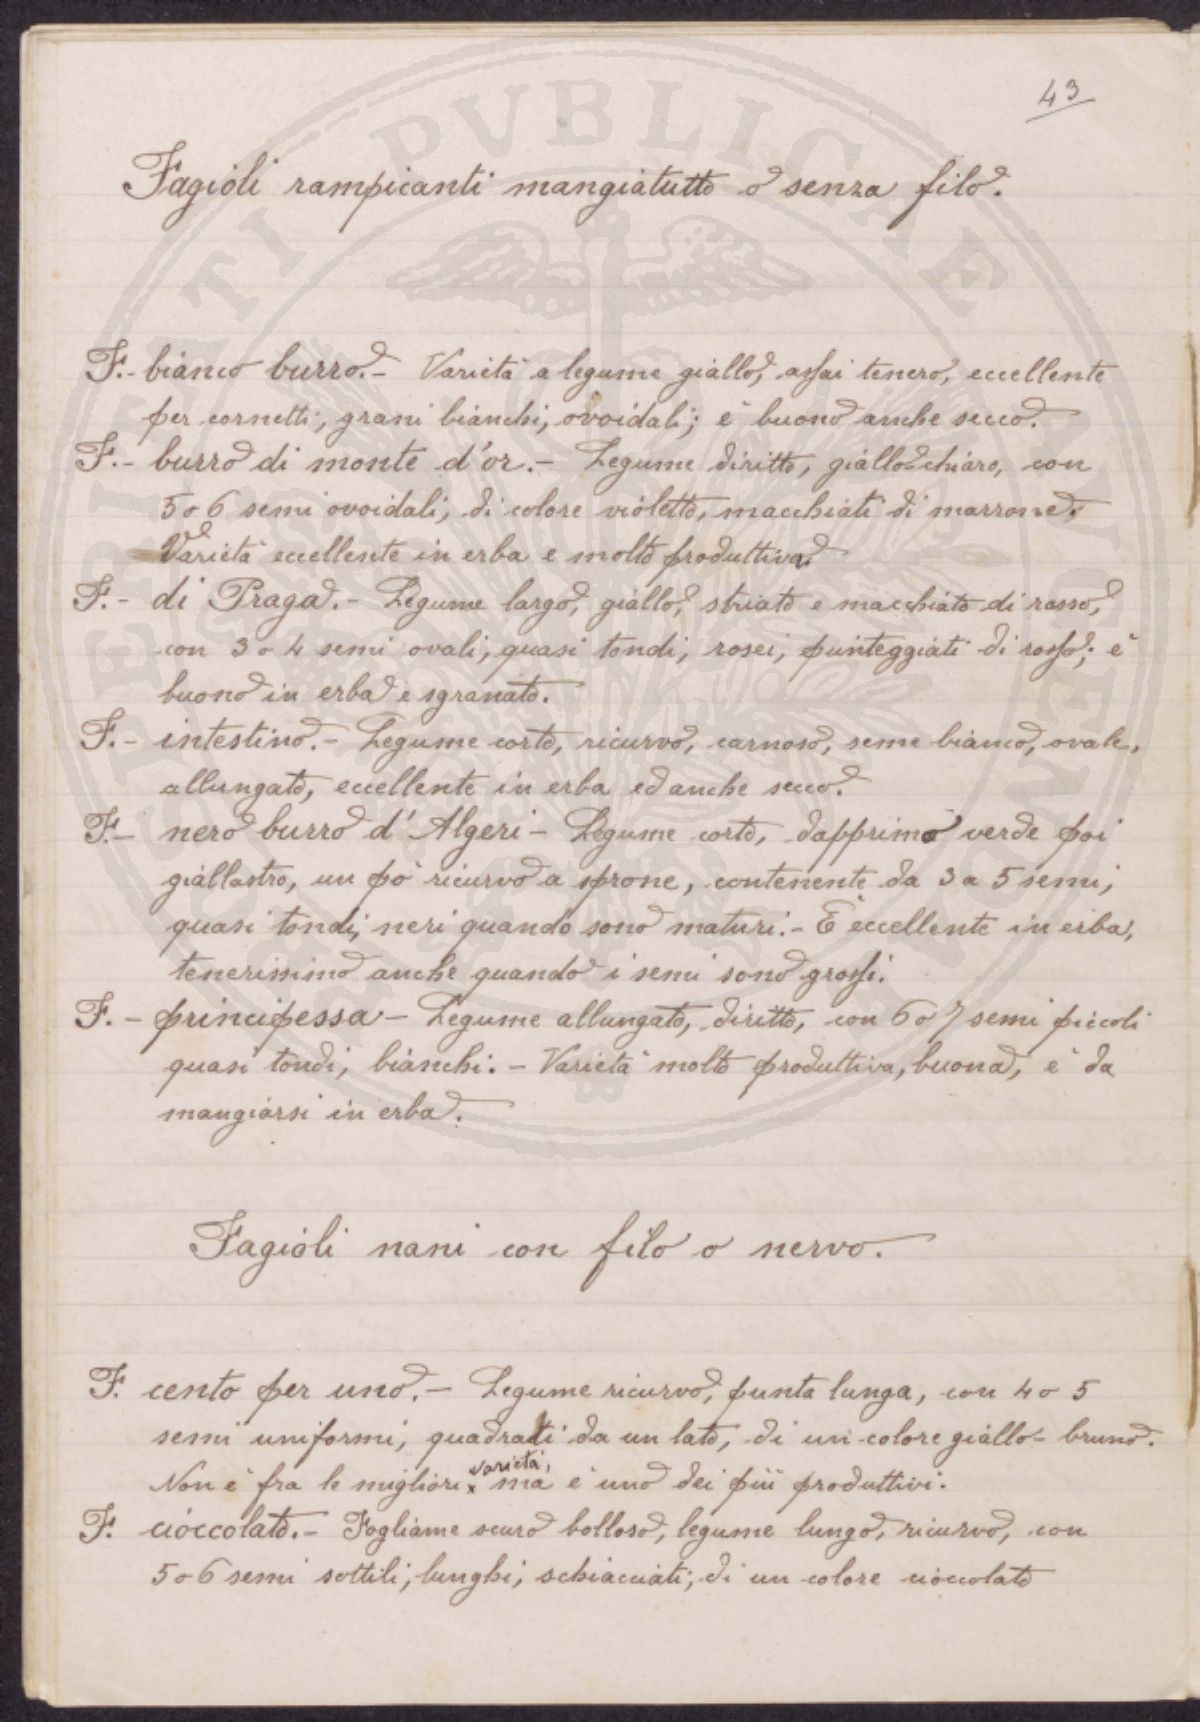 43
Fagioli rampicanti mangiatutto o senza filo.
F.- bianco burro.- Varietà a legume giallo, assai tenero, eccellente
per cornetti, grani bianchi, ovoidali; è buono anche secco.
F.- burro di monte d'or.- Legume diritto, giallo-chiaro, con
5 o 6 semi ovoidali, di colore violetto, macchiati di marrone.
Varietà eccellente in erba e molto produttiva.
F.- di Praga.- Legume largo, giallo, striato e macchiato di rosso,
con 3 o 4 semi ovali, quasi tondi, rosei, punteggiati di rosso; è
buono in erba e sgranato.
F.- intestino.- Legume corto, ricurvo, carnoso, seme bianco, ovale,
allungato, eccellente in erba ed anche secco.
F.- nero burro d'Algeri- Legume corto, dapprima verde poi
giallastro, un pò ricurvo a sprone, contenente da 3 a 5 semi,
quasi tondi, neri quando sono maturi.- È eccellente in erba,
tenerissimo anche quando i semi sono grossi.
F.- principessa- Legume allungato, diritto, con 6 o 7 semi piccoli
quasi tondi, bianchi.- Varietà molto produttiva, buona, è da
mangiarsi in erba.
Fagioli nani con filo o nervo.
F. cento per uno.- Legume ricurvo, punta lunga, con 4 o 5
semi uniformi, quadrati da un lato, di un colore giallo-bruno.
varietà,
Non è fra le migliori x ma è uno dei più produttivi.
F. cioccolato.- Fogliame scuro bolloso, legume lungo, ricurvo, con
5 o 6 semi sottili, lunghi, schiacciati, di un colore cioccolato